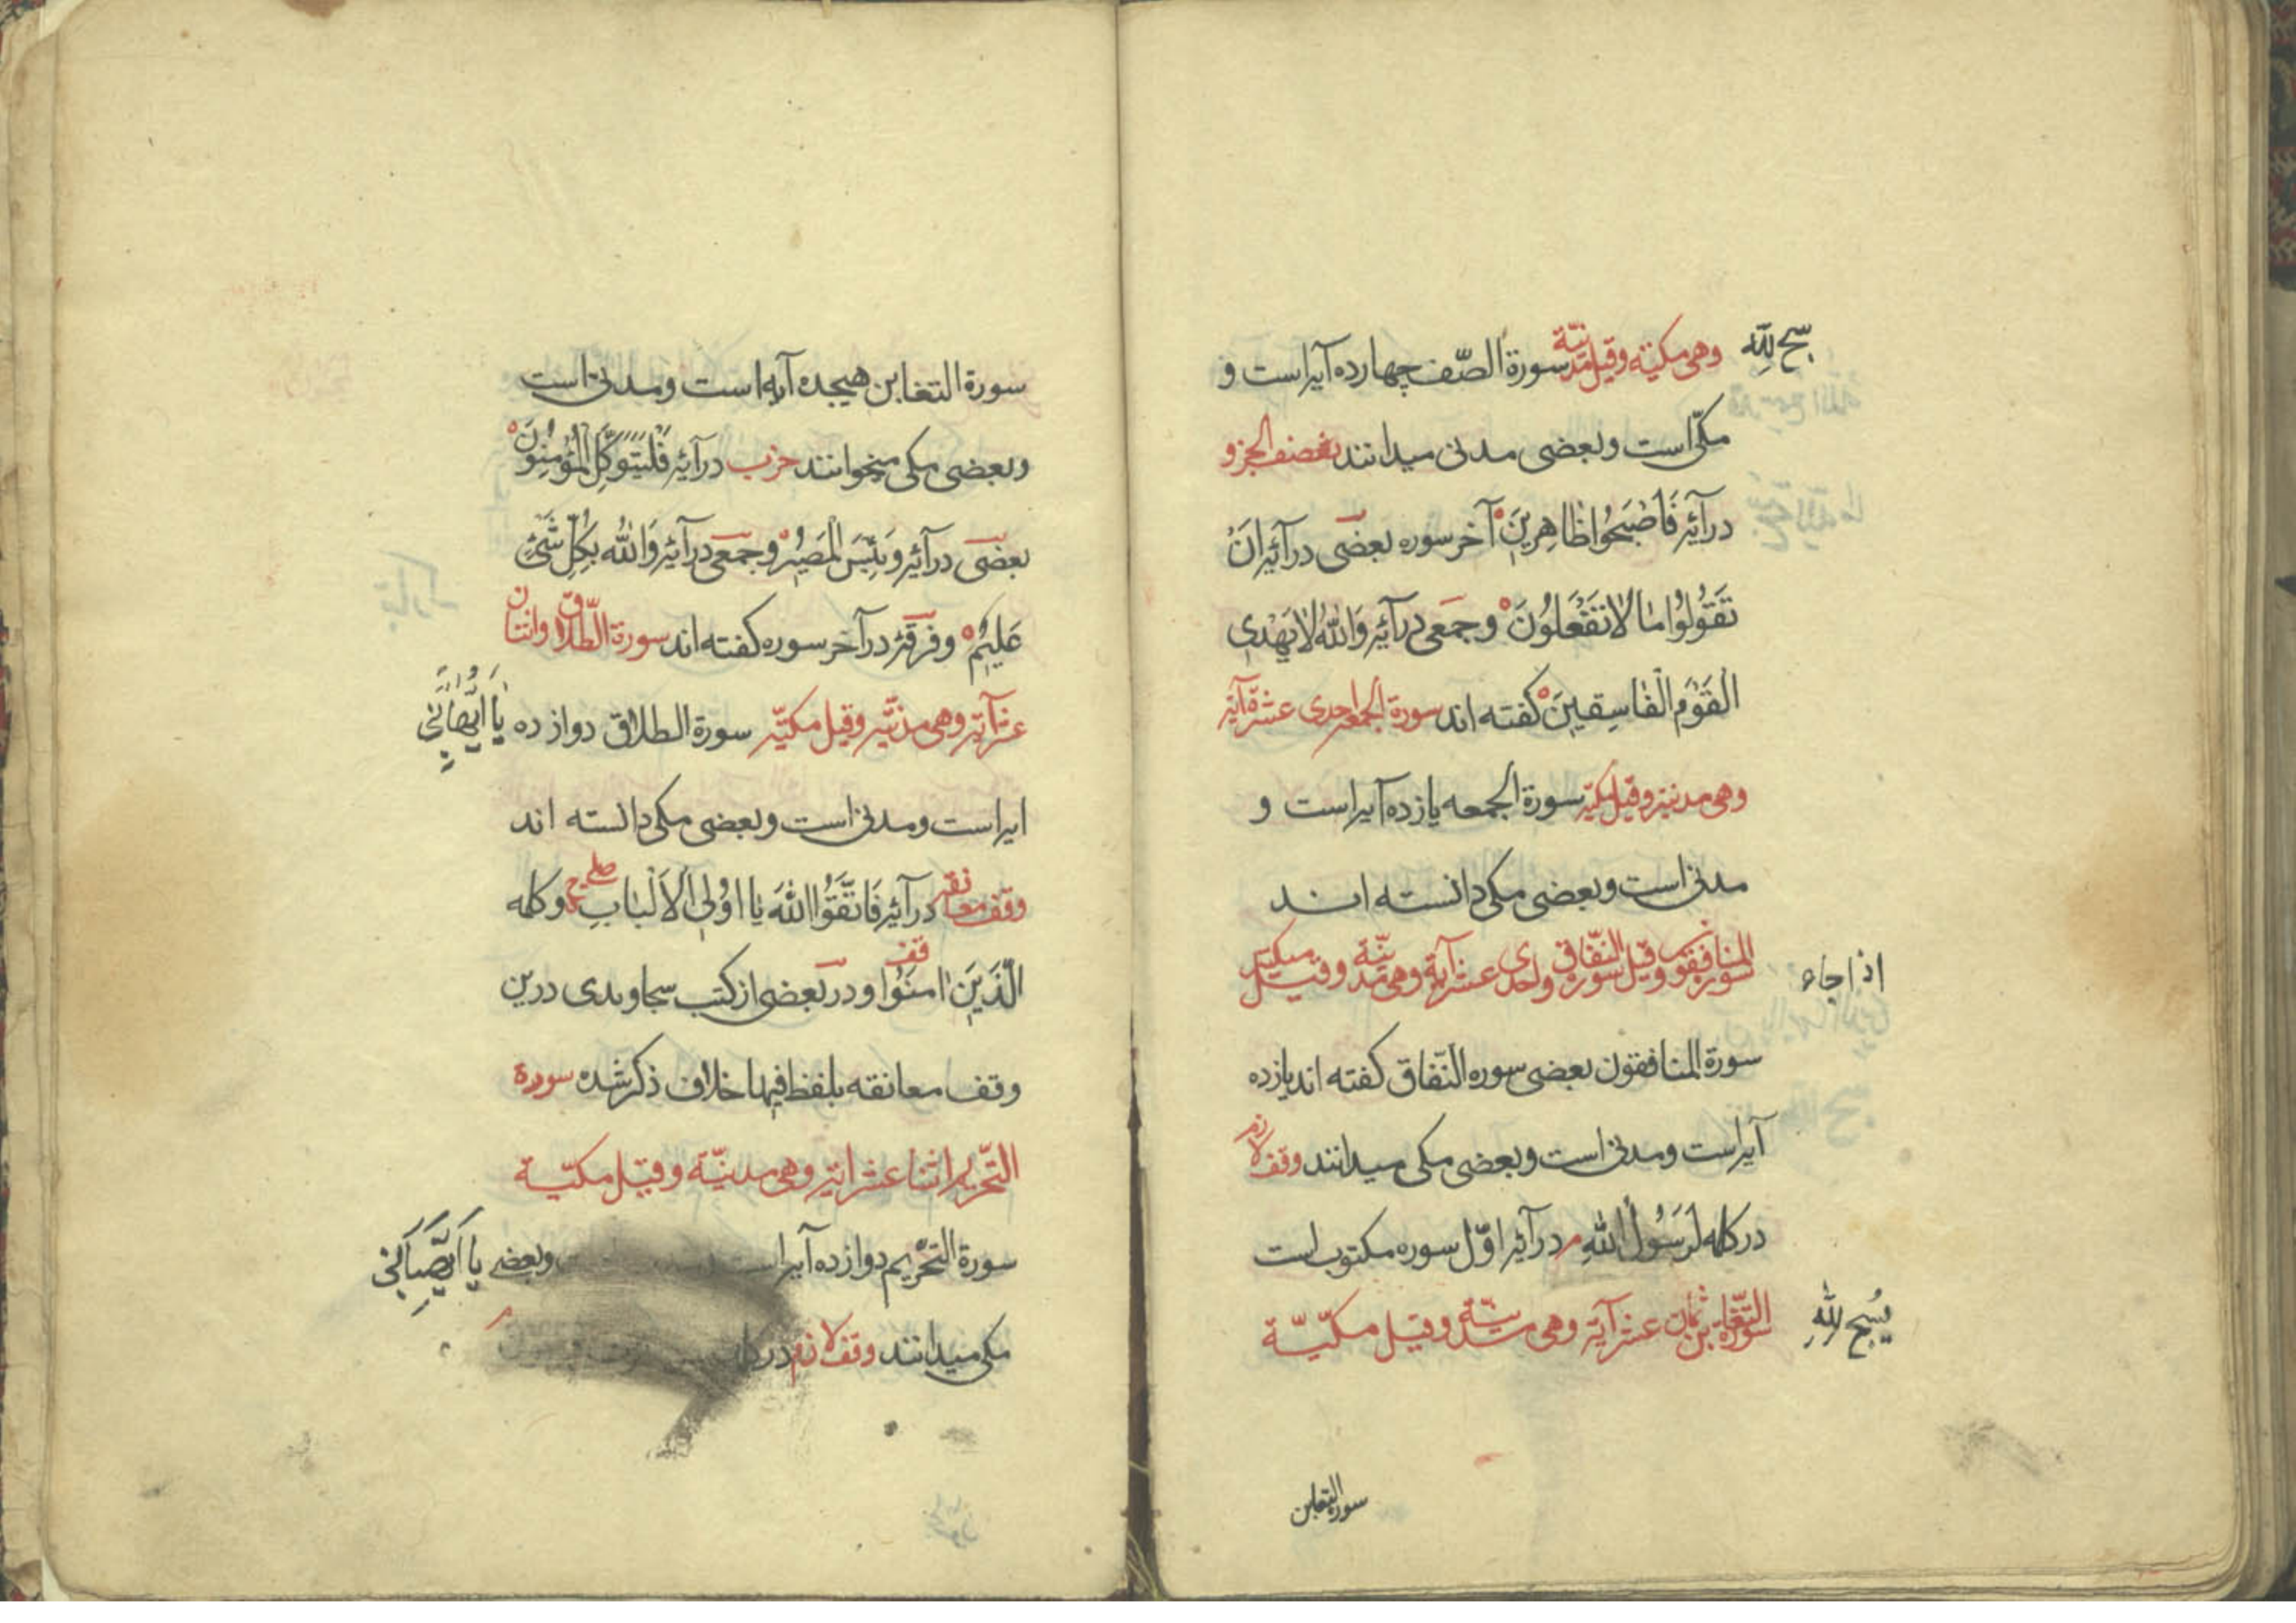 سبح لله
وهی مکیته وقیل مدنیّة سورة الصّف چهارده آیراست و
مکّی است وبعضی مدنی میدانند نصف الجزو
درآئیر فَاَصْبَحُوا ظَاهِرِینَ آخر سوره بعضی درآئیر اَنْ
تَقُولُوا مَا لَا تَفْعَلُونَ وجمعی درآئیر وَاللّٰهُ لَا یَهْدِی
الْقَوْمَ الْفَاسِقِینَ کفته اند سورة الجمعه احدی عشرة آیة
وهی مدنیة وقیل مکیة سورة الجمعه یازده آیراست و
مدنی است وبعضی مکی دانسته اند
اذا جاء
سورة المنافقون وقیل سورة النّفاق واحدی عشر آیة وهی مدنیّة وقیل مکیة
سورة المنافقون بعضی سوره النّفاق کفته اند یازده
آیراست ومدنی است وبعضی مکی میدانند وقف لازم
در کلمه لَرَسُولُ اللّٰهِ م درآئیر اوّل سوره مکتوب است
یُسبح لِلّٰهِ
سورة التّغابن ثمان عشر آیة وهی مدنیّة وقیل مکّیّة
سورة التغابن
سورة التغابن هیجده آیه است ومدنی است
وبعضی مکی میخوانند حزب درآئیر فَلْیَتَوَکَّلِ الْمُؤْمِنُونَ
بعضی درآئیر وَبِئْسَ الْمَصِیرُ وجمعی درآئیر وَاللّٰهُ بِکُلِّ شَیْءٍ
عَلِیمٌ وفرقهٔ درآخر سوره کفته اند سورة الطّلاق واثنتان
عشر آیة وهی مدنیّة وقیل مکیّة سورة الطلاق دوازده
یَا اَیُّهَا النَّبِیُّ
ایراست ومدنی است وبعضی مکی دانسته اند
وقف معانقه درآئیر فَاتَّقُوا اللّٰهَ یَا اُولِی الْاَلْبَابِ صلے وکلمه
الَّذِینَ اٰمَنُوا قف ودر بعضی از کتب سجاوندی درین
وقف معانقه بلفظ فیها خلاف ذکر شده سورة
التّحریم اثنا عشر ایة وهی مدنیّة وقیل مکیّة
سورة التحریم دوازده آیراست وبعضے
مکی میدانند وقف لازم در